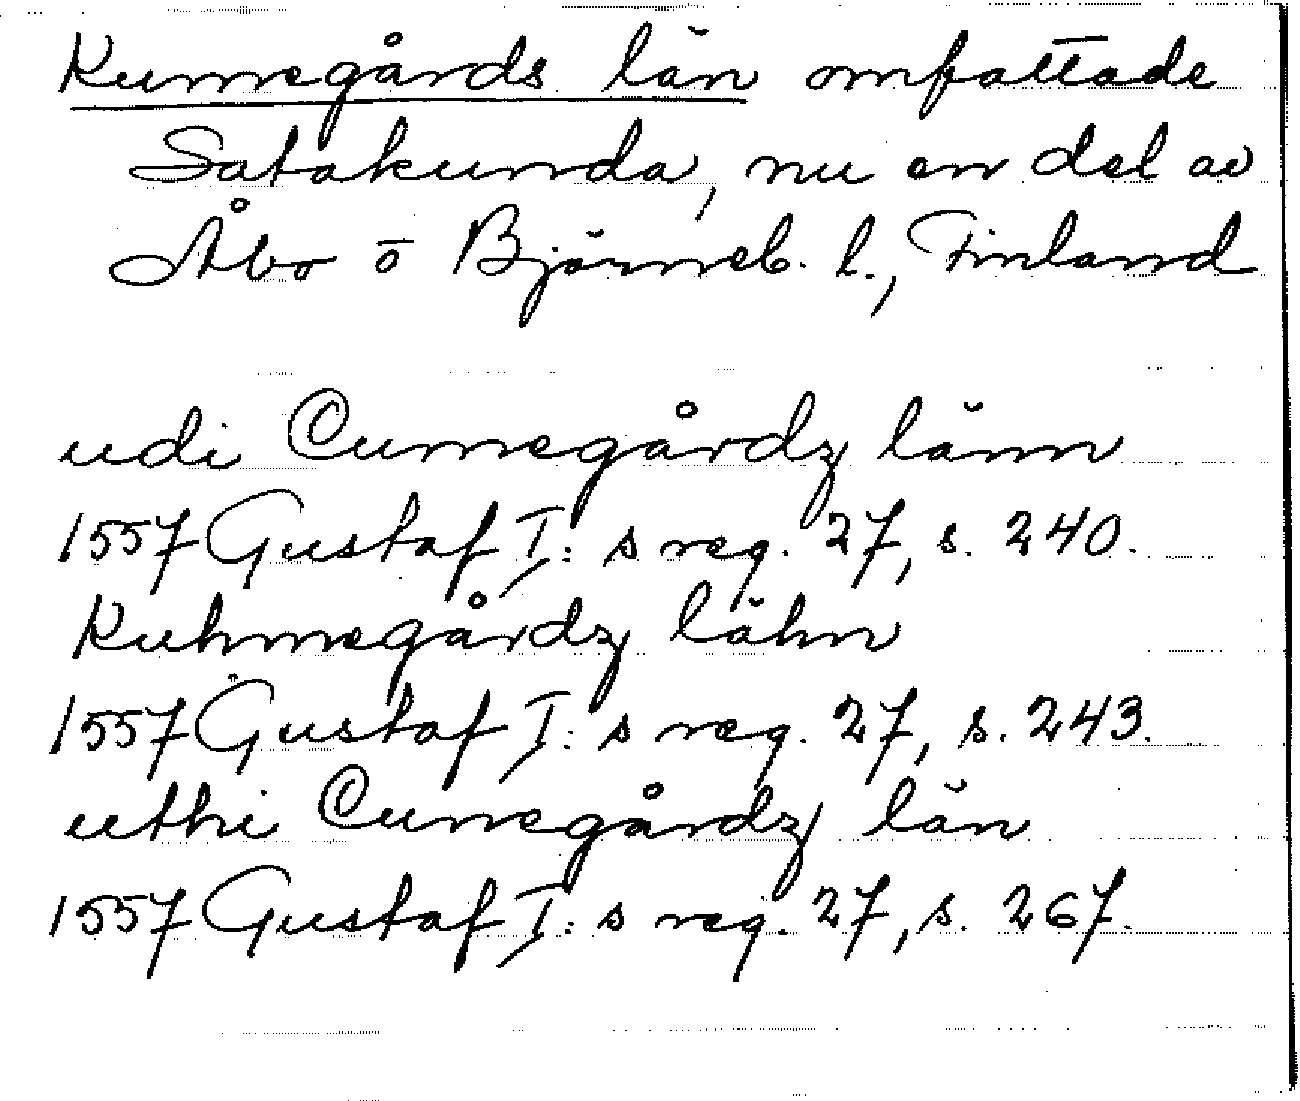 Kumegårds län omfattade
Satakunda, nu en del av
Åbo o Björneb. l., Finland
udi Cumegårdz länn
1557 Gustaf I: s reg. 27, s. 240.
Kuhmegårdz lähn
1557 Gustaf I: s reg. 27, s. 243.
uthi Cumegårdz län
1557 Gustaf I: s reg. 27, s. 267.